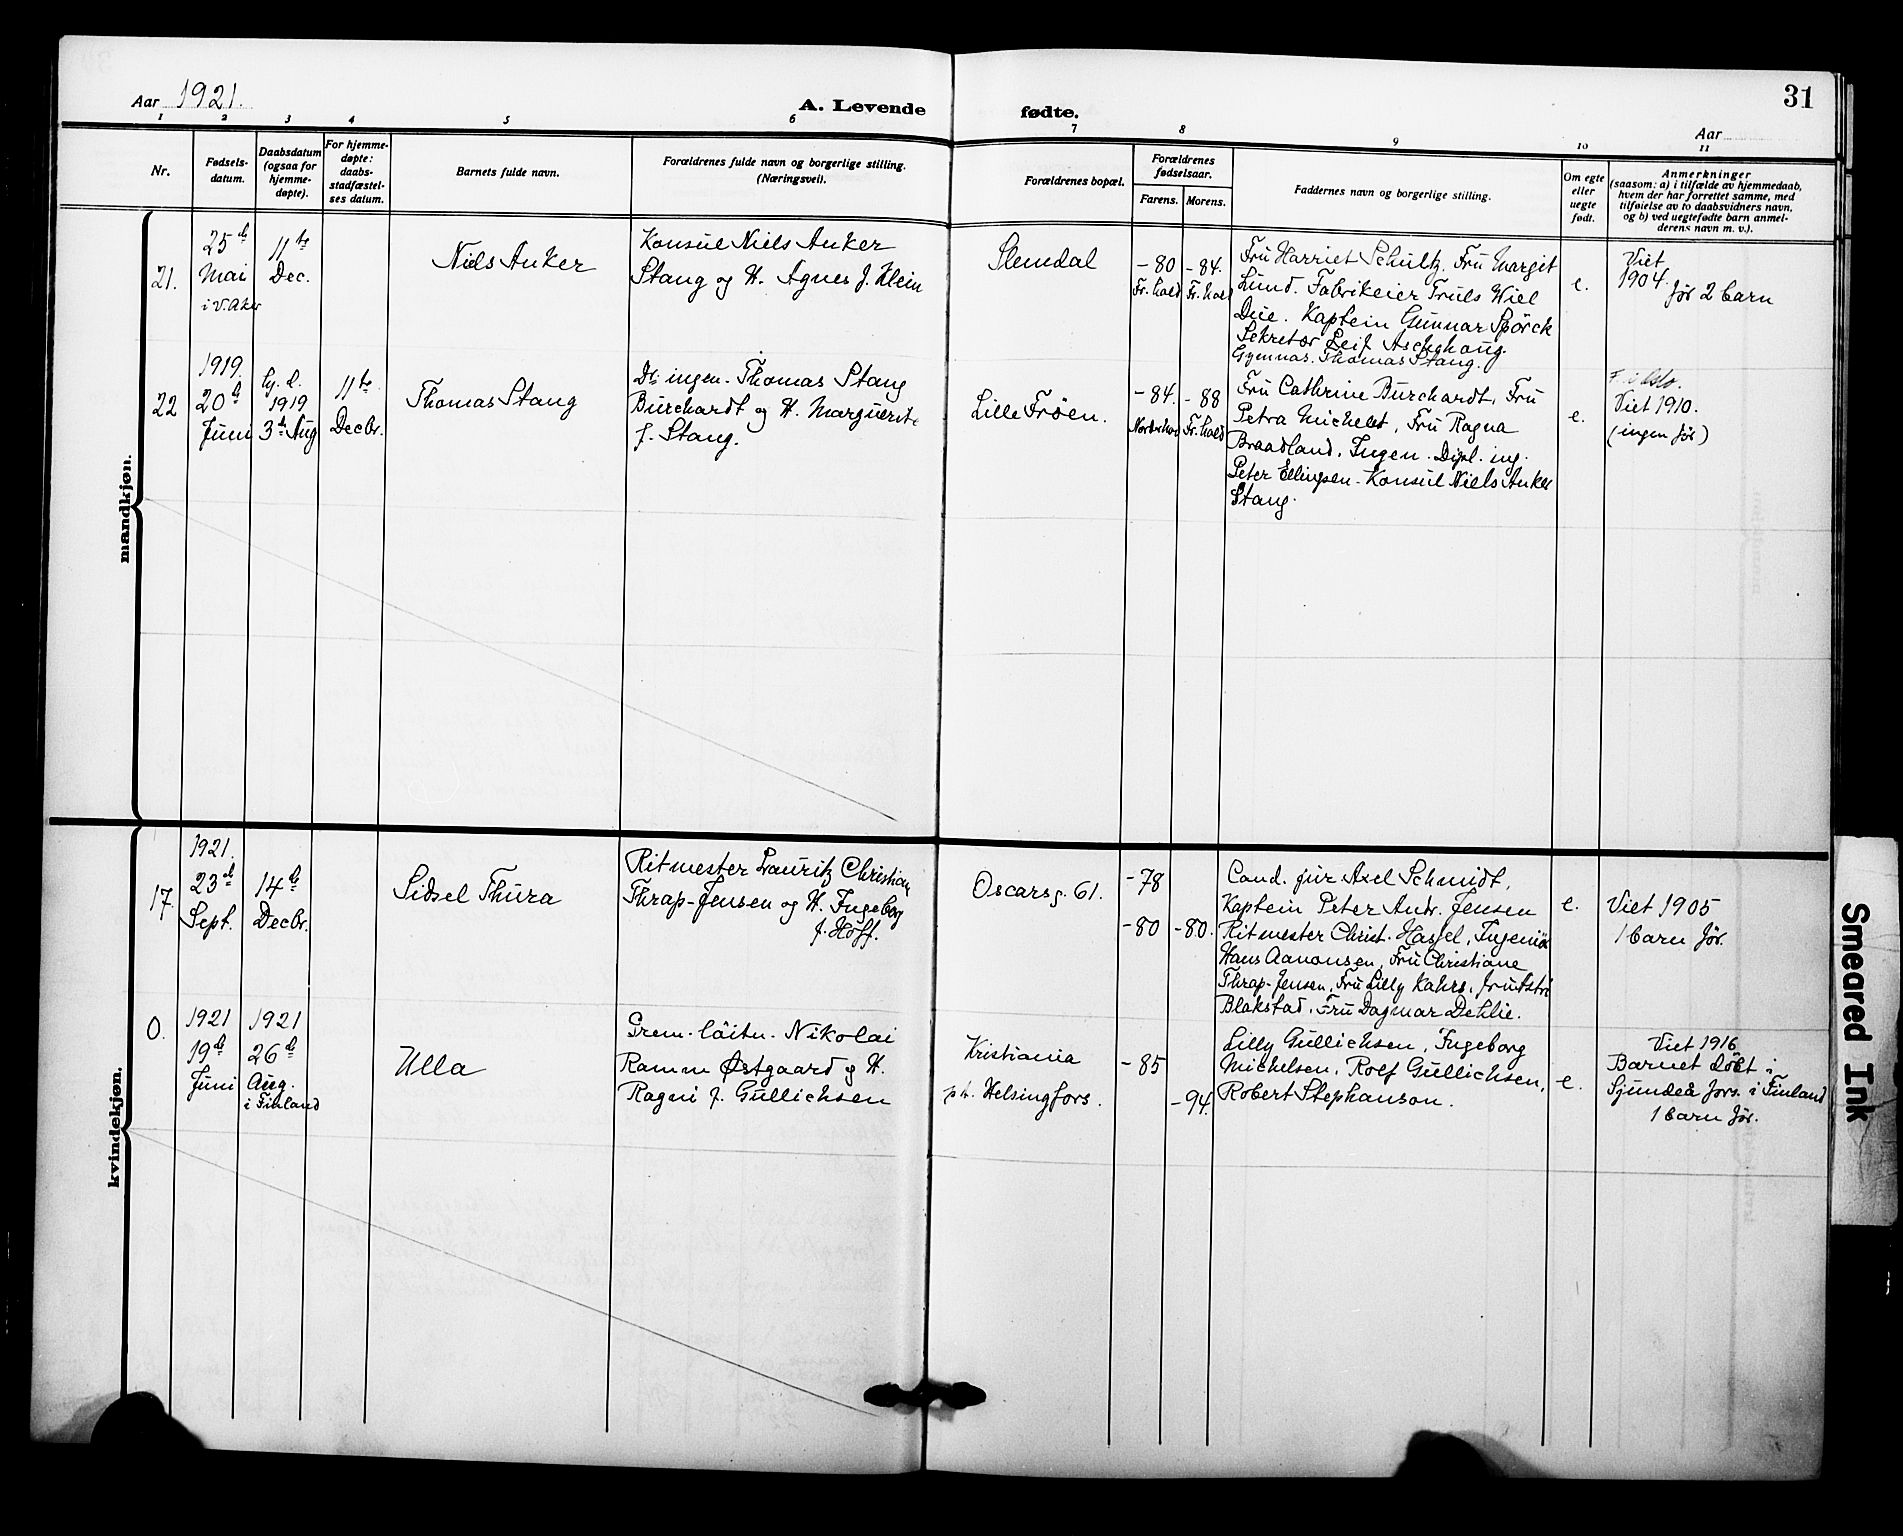 Aar 1921.
A. Levende
fødte.
31
Aar
1 2 3 4 5 6 7 8 9 10 11
Nr.
Fødsels-
datum.
Daabsdatum
(ogsaa for
hjemme-
døpte).
For hjemme-
døpte:
daabs-
stadfæstel-
ses datum.
Barnets fulde navn.
Forældrenes fulde navn og borgerlige stilling.
(Næringsvei).
Forældrenes bopæl.
Forældrenes
fødselsaar.
Farens. Morens.
Faddernes navn og borgerlige stilling.
Om egte
eller
uegte
født.
Anmerkninger
(saasom: a) i tilfælde av hjemmedaab,
hvem der har forrettet samme, med
tilføielse av to daabsvidners navn,
og b) ved uegtefødte barn anmel-
derens navn m. v.).
mandkjøn.
21.
25de
Mai
i V. Aker
11te
Dec.
Niels Anker
Konsul Niels Anker
Stang og H. Agnes f. Klein
Slemdal
-80
Fr.hald
-84.
Fr.hald
Fru Harriet Schultz. Fru Margit
Lund. Fabrikeier Truls Wiel
Due. Kaptein Gunnar Spörck
Sekretær Leif Aschehoug.
Gymnas. Thomas Stang.
e.
Viet
1904.
før 2 barn
22
1919.
20de
Juni
hj. d.
1919
3de Aug
11te
Decbr.
Thomas Stang
Dr. ingen. Thomas Stang
Burchardt og H. Marguerite
f. Stang.
Lille Frøen.
-84.
-88
Fr.hald
Fru Cathrine Burchardt, Fru
Petra Michelet, Fru Ragna
Braadland, Ingen. Dipl. ing.
Peter Ellingsen. Konsul Niels Anker
Stang.
e.
F. i Oslo.
Viet 1910.
(ingen før)
kvindekjøn.
17.
1921.
23de
Sept.
14de
Decbr.
Sidsel Thura
Ritmester Lauritz Christian
Thrap-Jensen og H. Ingeborg
f. Hoff.
Oscarsg. 61.
-78
-80
-80.
Cand. jur Axel Schmidt,
Kaptein Peter Andr. Jensen
Ritmester Christ. Hasfel, Ingeniør
Hans Aanonsen, Fru Christiane
Thrap-Jensen, Fru Lilly Kahrs,
Blakstad, Fru Dagmar Dehlie.
e.
Viet 1905
1 barn før.
0.
1921
19de
Juni
1921
26de
Aug.
i Finland
Ulla
Prem. löitn. Nikolai
Ramm Østgaard og H.
Ragni f. Gullichsen
Kristiania
p.t. Helsingfors.
-85
-94.
Lilly Gullichsen, Ingeborg
Michelsen, Rolf Gullichsen,
Robert Stephanson.
e.
Viet 1916
Barnet döbt i
Sjundeå fors. i Finland
1 barn før.
Smeared Ink